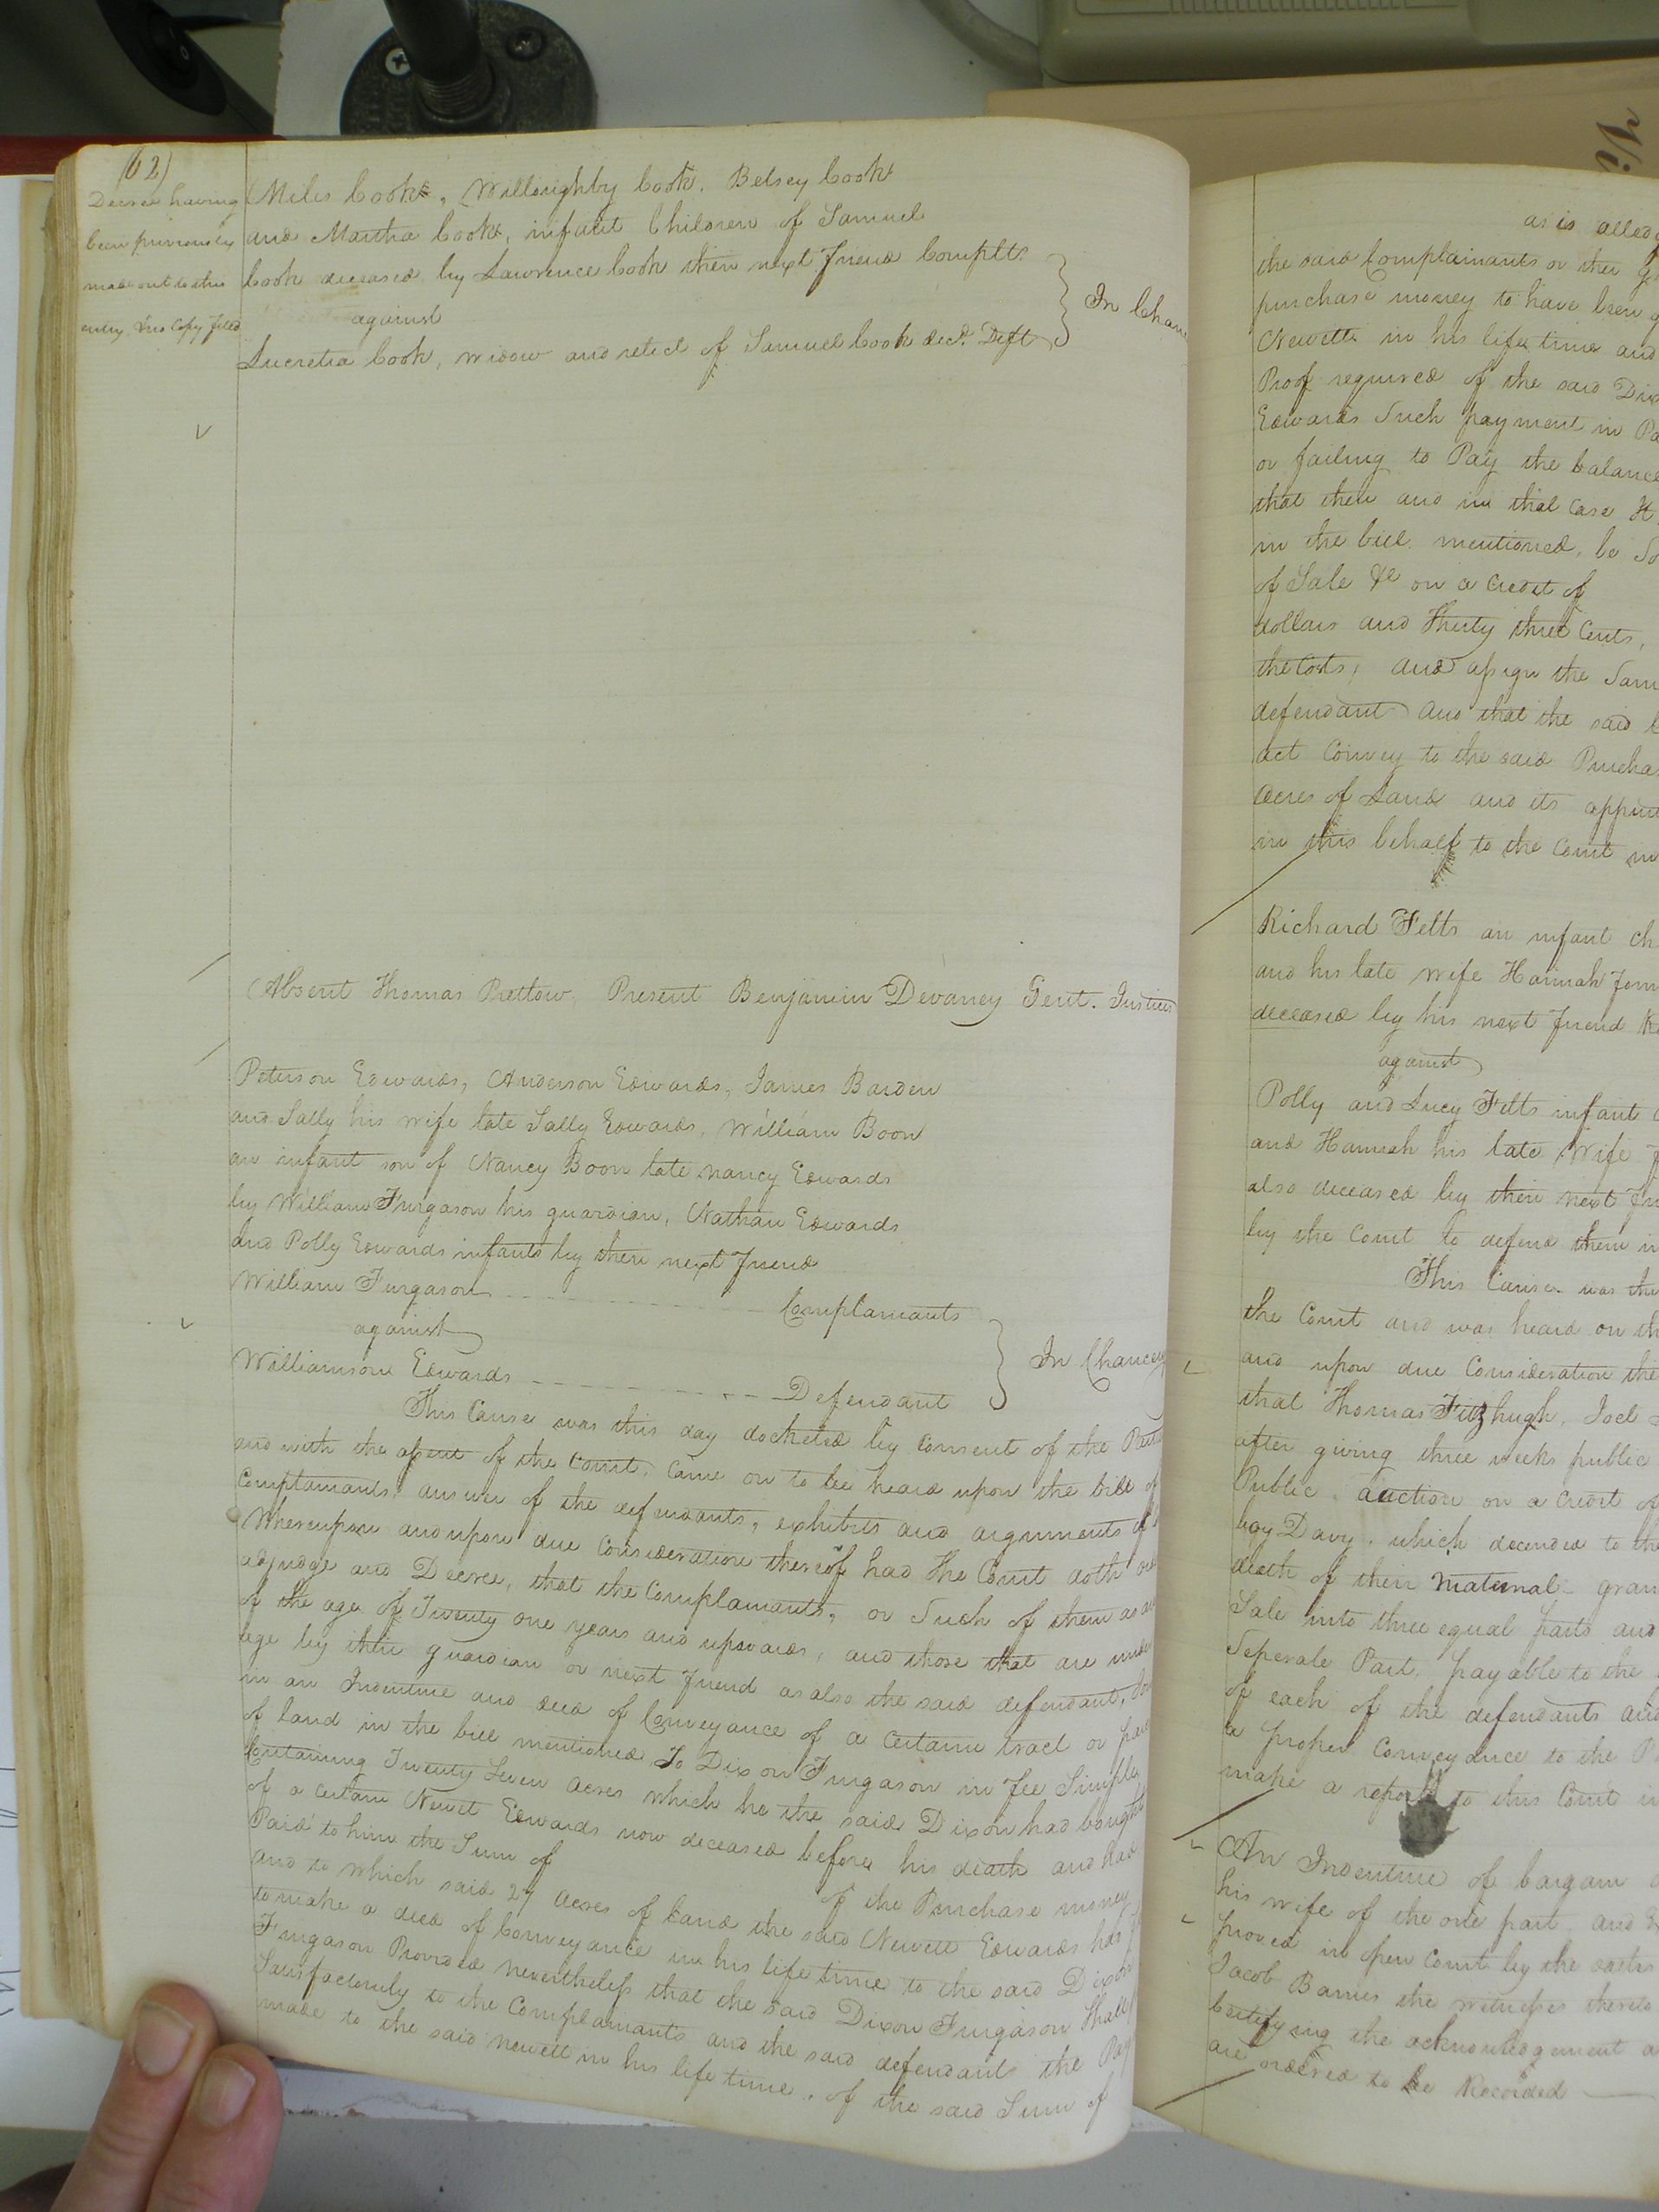 (62)
Decree having
been previously
made out to this
entry & no Copy filed
Miles Cook, Willoughby Cook, Betsey Cook
and Martha Cook, infant Children of Samuel
Cook deceased by Lawrence Cook their next friend Complts
against
Lucretia Cook, widow and relict of Samuel Cook decd. Deft
In Chan
Absent Thomas Pretlow, Present Benjamin Devaney Gent. Justices
Peterson Edwards, Anderson Edwards, James Barden
and Sally his wife late Sally Edwards, William Boon
an infant son of Nancy Boon late Nancy Edwards
by William Furgason his guardian, Nathan Edwards
and Polly Edwards infants by their next friend
William Furgason Complainants
against
Williamson Edwards Defendant
In Chancery
This Cause was this day docketed by Consent of the
and with the assent of the Court, Came on to be heard upon the bill of
Complainants, answer of the defendants, exhibits and arguments of
Whereupon and upon due Consideration thereof had the Court doth
adjudge and Decree, that the Complainants, or Such of them as
of the age of Twenty one years and upwards, and those that are under
age by their guardian or next friend as also the said defendant,
in an Indenture and deed of Conveyance of a Certain tract or
of land in the bill mentioned To Dixon Furgason in fee Simple
Containing Twenty Seven acres which he the said Dixon had bought
of a Certain Newit Edwards now deceased before his death and had
Paid to him the Sum of of the Purchase money
and to which said 27 acres of Land the said Newett Edwards has
to make a deed of Conveyance in his life time to the said Dixon
Furgason Provided nevertheless that the said Dixon Furgason Shall
Satisfactorily to the Complainants and the said defendants the
made to the said Newett in his life time, of the said Sum of
as is
the said Complainants or their
purchase money to have been
Newett in his life time and
Proof required of the said
Edwards Such payment in
or failing to Pay the balance
that then and in that Case
in the bill mentioned, be
of Sale &c on a Credit of
dollars and Thirty three Cents,
the Costs, and assign the
defendant and that the said
act Convey to the said
acres of Land and its
in this behalf to the Court
Richard Felts an infant
and his late wife Hannah
deceased by his next friend
against
Polly and Lucy Felts infant
and Hannah his late Wife
also deceased by their next
by the Court to defend them
This Cause was
the Court and was heard on
and upon due Consideration
that Thomas Fitzhugh, Joel
after giving three weeks public
Public Auction on a Credit of
boy Davy, which decended to
death of their maternal
Sale into three equal parts and
Seperate Part, payable to the
of each of the defendants
a proper Conveyance to the
make a report to this Court
An Indenture of bargain
his wife of the one part and
proved in open Court by the oaths
Jacob Barnes the witnesses thereto
Certifying the acknowledgement
are ordered to be Recorded